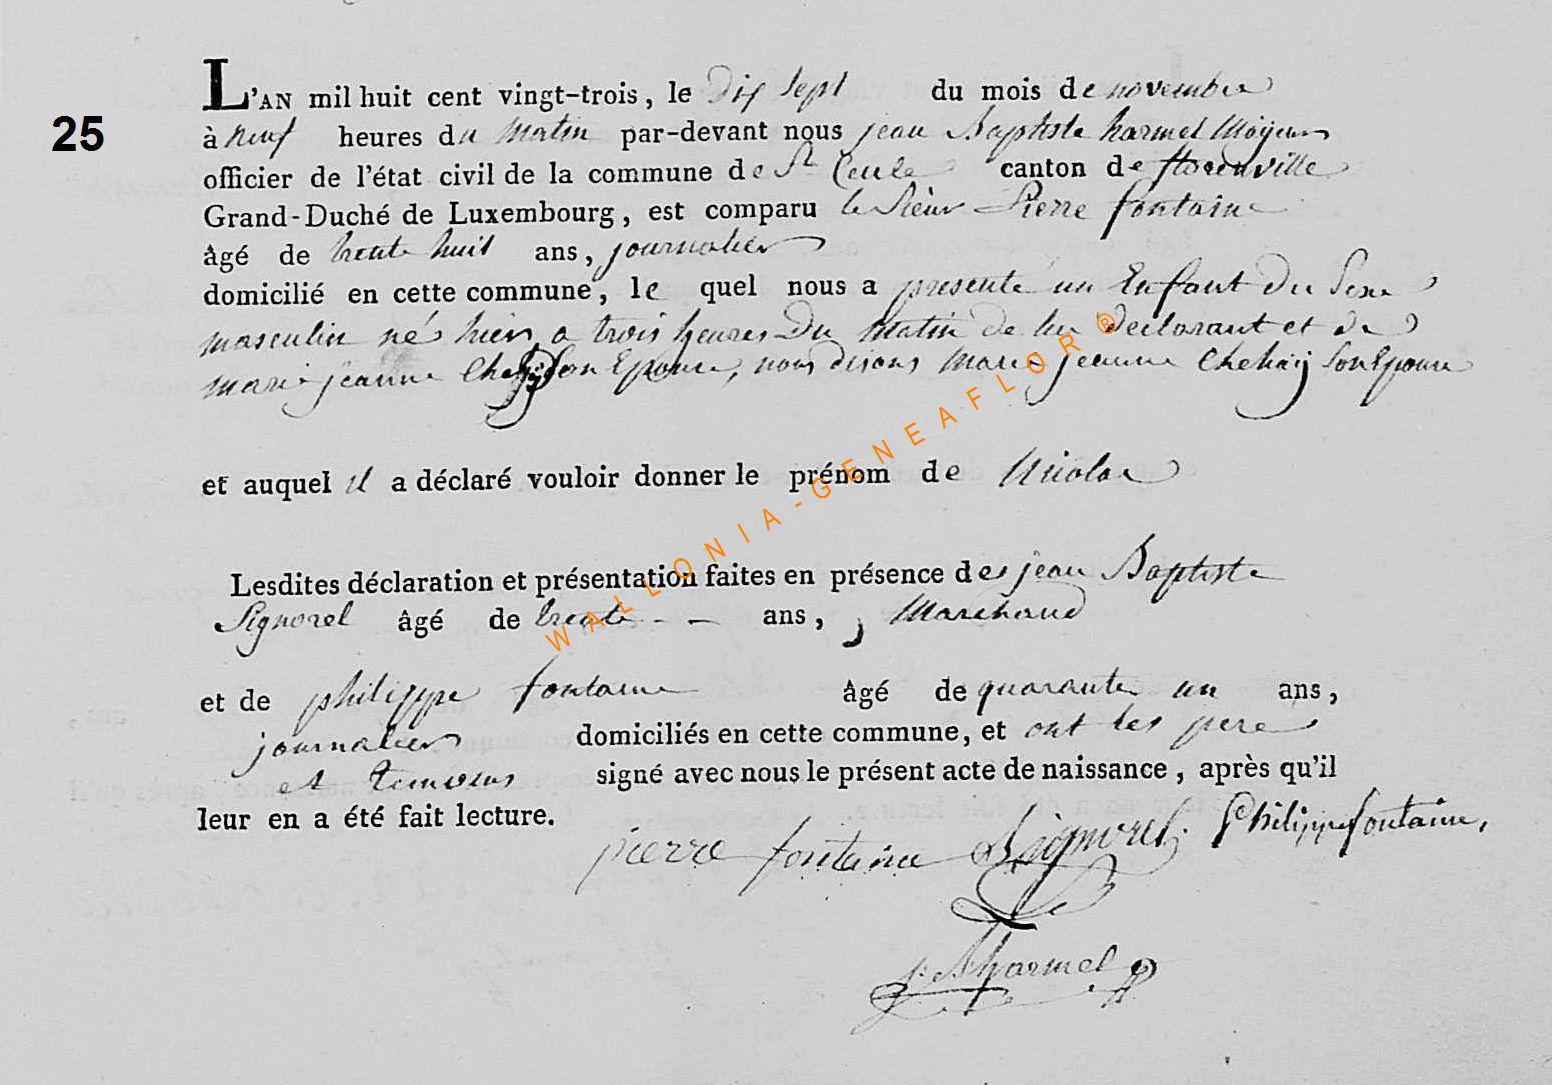 L'AN mil huit cent vingt-trois, le dix sept du mois de novembre
25
à neuf heures du matin par-devant nous jean Baptiste harmel Mayeur
officier de l'état civil de la commune de Ste Cecile canton de florenville
Grand-Duché de Luxembourg, est comparu le Sieur Pierre fontaine
âgé de trente huit ans, journalier
domicilié en cette commune, le quel nous a présenté un Enfant Du Sexe
masculin né hier a trois heures Du matin de lui declarant et de
marie jeanne Son Epouse, nous disons marie jeanne Chehaij Son Epouse
et auquel il a déclaré vouloir donner le prénom de Nicolas
Lesdites déclaration et présentation faites en présence des jean Baptiste
Signorel âgé de trente - - ans, Marchand
et de philippe fontaine âgé de quarante un ans,
journalier domiciliés en cette commune, et ont les pere
et temoins signé avec nous le présent acte de naissance, après qu'il
leur en a été fait lecture.
pierre fontaine Signorel. Philippe fontaine,
j: B harmel
WALLONIA-GENEAFLOR ®